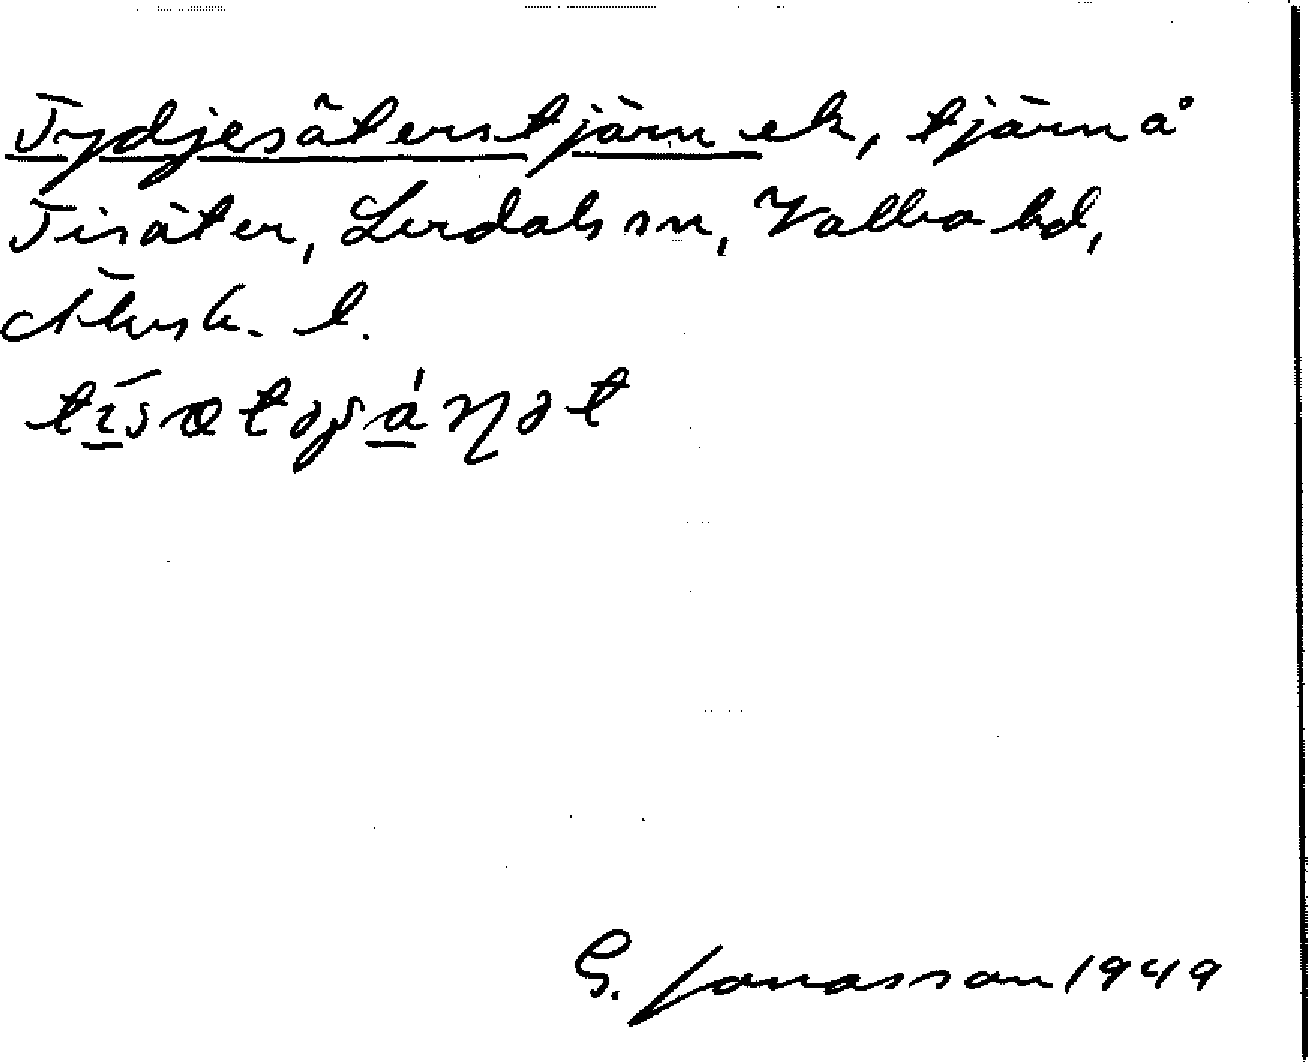 Tydjesäterstjärn ek, tjärn å
Tisäter, Lerdals sn, Valbo hd,
Älvsb. l.
G. Jonasson 1949